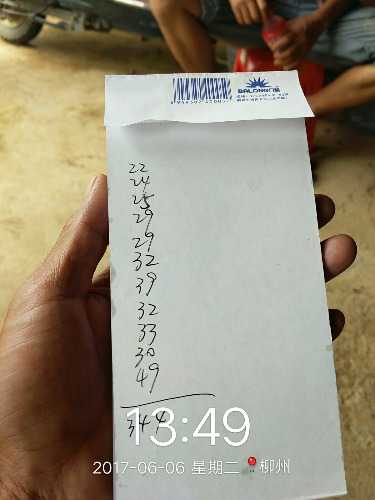 BALONG
22
24
25
29
29
32
39
32
33
30
49
344
13:49
2017-06-06 星期二 柳州